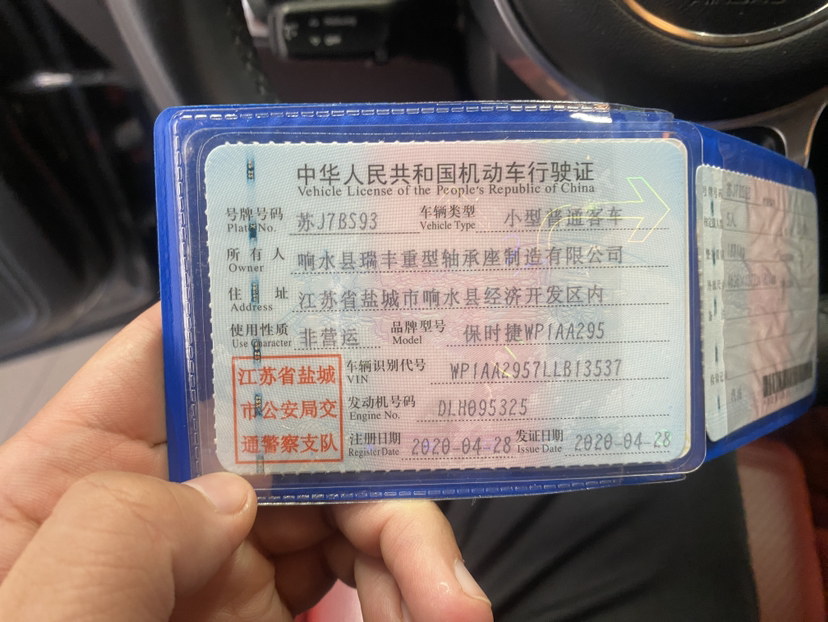 中华人民共和国机动车行驶证
Vehicle License of the People's Republic of China
号牌号码 苏J7BS93 车辆类型 小型普通客车
Plate No. Vehicle Type
所有人 响水县瑞丰重型轴承座制造有限公司
Owner
住址 江苏省盐城市响水县经济开发区内
Address
使用性质 非营运 品牌型号 保时捷WP1AA295
Use Character Model
江苏省盐城
市公安局交
通警察支队
车辆识别代号 WP1AA2957LLB13537
VIN
发动机号码 DLH095325
Engine No.
注册日期 2020-04-28 发证日期 2020-04-28
Register Date Issue Date
5人